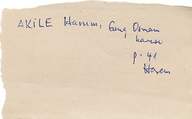 AKİLE Hanım, Genç Osman
karısı
p - 41
Harem